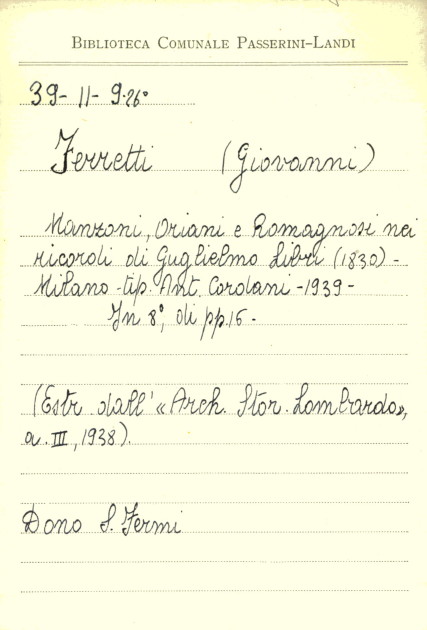 BIBLIOTECA COMUNALE PASSERINI-LANDI
39- 11- 9.26°
Ferretti (Giovanni)
Manzoni, Oriani e Romagnosi nei
ricordi di Guglielmo Libri (1830) -
Milano - tip. Ant. Cordani - 1939 -
In 8°, di pp. 16 -
(Estr. dall' «Arch. Stor. Lombardo»,
a. III, 1938).
Dono S. Fermi